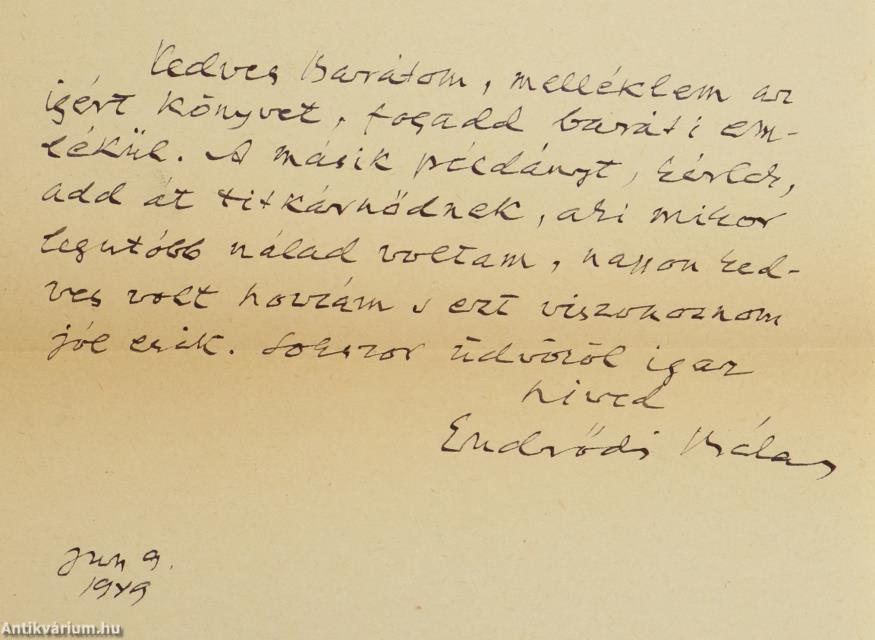 Kedves Barátom, melléklem az
igért könyvet, fogadd baráti em-
lékül. A másik példányt, kérlek,
add át titkárnődnek, aki mikor
legutóbb nálad voltam, nagyon ked-
ves volt hozzám s ezt viszonoznom
jól esik. Sokszor üdvözöl igaz
hived
Endrődi Béla
Jun 9.
1949
Antikvárium.hu